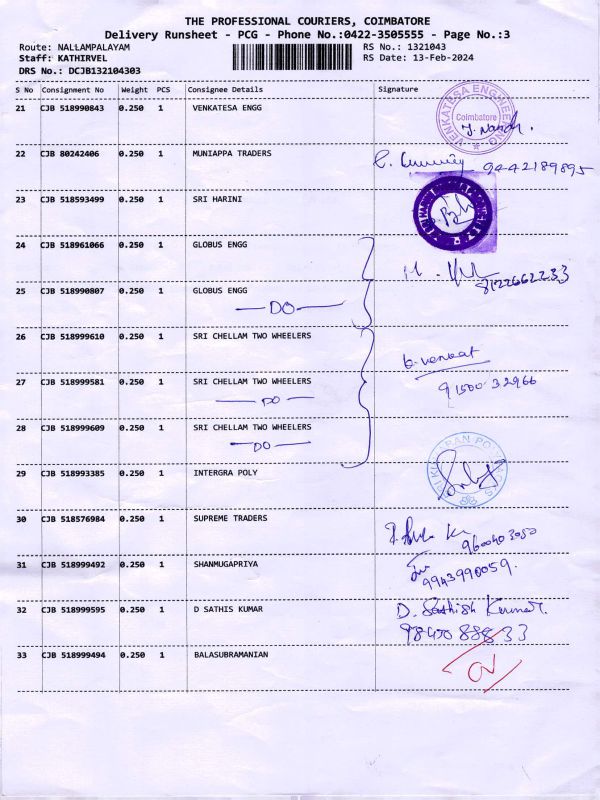 THE PROFESSIONAL COURIERS, COIMBATORE
Delivery Runsheet - PCG - Phone No.:0422-3505555 - Page No.:3
Route: NALLAMPALAYAM RS No.: 1321043
Staff: KATHIRVEL RS Date: 13-Feb-2024
DRS No.: DCJB132104303
S No Consignment No Weight PCS Consignee Details Signature
21 CJB 518990843 0.250 1 VENKATESA ENGG
VENKATESA ENGINEERING
Coimbatore
22 CJB 80242406 0.250 1 MUNIAPPA TRADERS
9442189895
23 CJB 518593499 0.250 1 SRI HARINI
24 CJB 518961066 0.250 1 GLOBUS ENGG
8122662233
25 CJB 518990807 0.250 1 GLOBUS ENGG
DO
26 CJB 518999610 0.250 1 SRI CHELLAM TWO WHEELERS
G. Venkat
27 CJB 518999581 0.250 1 SRI CHELLAM TWO WHEELERS
91500 32966
DO
28 CJB 518999609 0.250 1 SRI CHELLAM TWO WHEELERS
DO
29 CJB 518993385 0.250 1 INTERGRA POLY
30 CJB 518576984 0.250 1 SUPREME TRADERS
9600403050
31 CJB 518999492 0.250 1 SHANMUGAPRIYA
9943990059.
32 CJB 518999595 0.250 1 D SATHIS KUMAR
D. Sathish Kumar.
98450 88833
33 CJB 518999494 0.250 1 BALASUBRAMANIAN